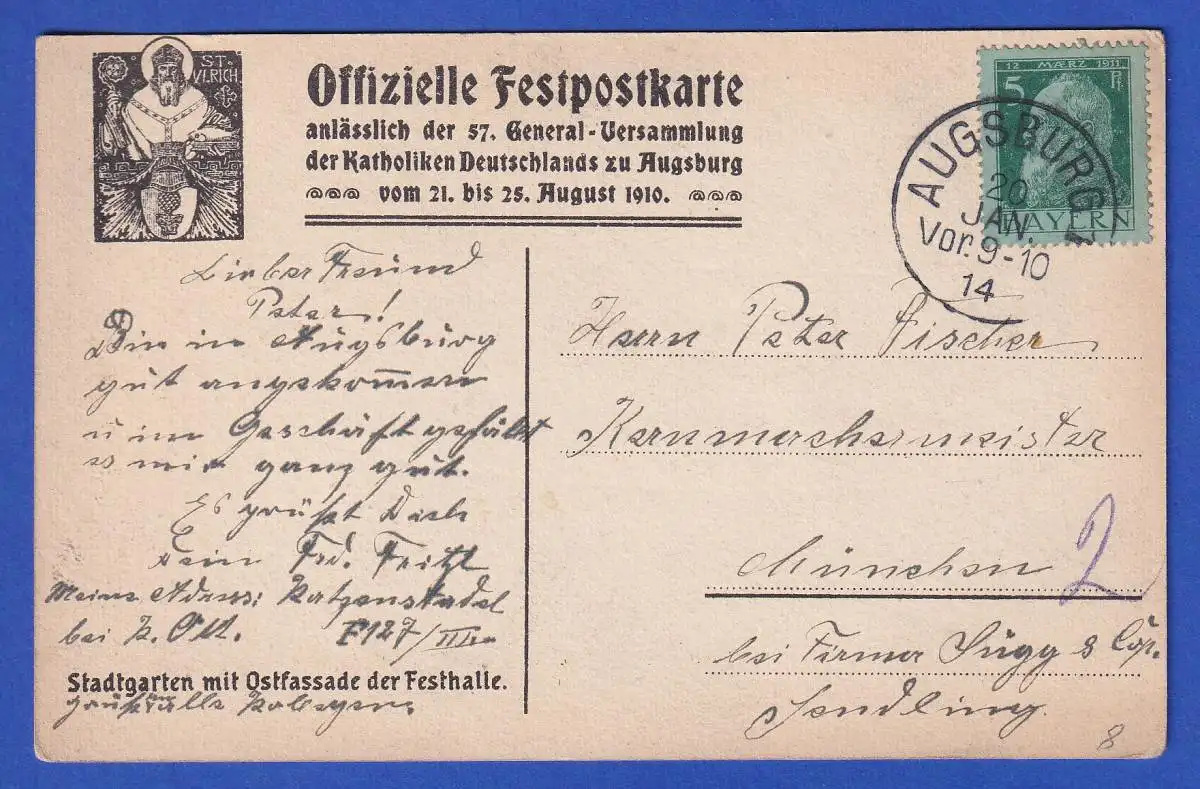 ST.
VLRICH
Offizielle Festpostkarte
anlässlich der 57. General-Versammlung
der Katholiken Deutschlands zu Augsburg
vom 21. bis 25. August 1910.
12 MÆRZ 1911
5
BAYERN
AUGSBURG
20
JAN.
Vor. 9-10
14
Lieber Freund
Peter!
Bin in Augsburg
gut angekommen
u im Geschäft gefällt
es mir ganz gut.
Es grüßt Dich
Dein Frd. Fritz
Meine Adress: Katzenstadel
bei K. Ott. F127/III
Stadtgarten mit Ostfassade der Festhalle.
Herrn Peter Fischer
Kernmachermeister
München 2
bei Firma & Cop.
Sendling
8